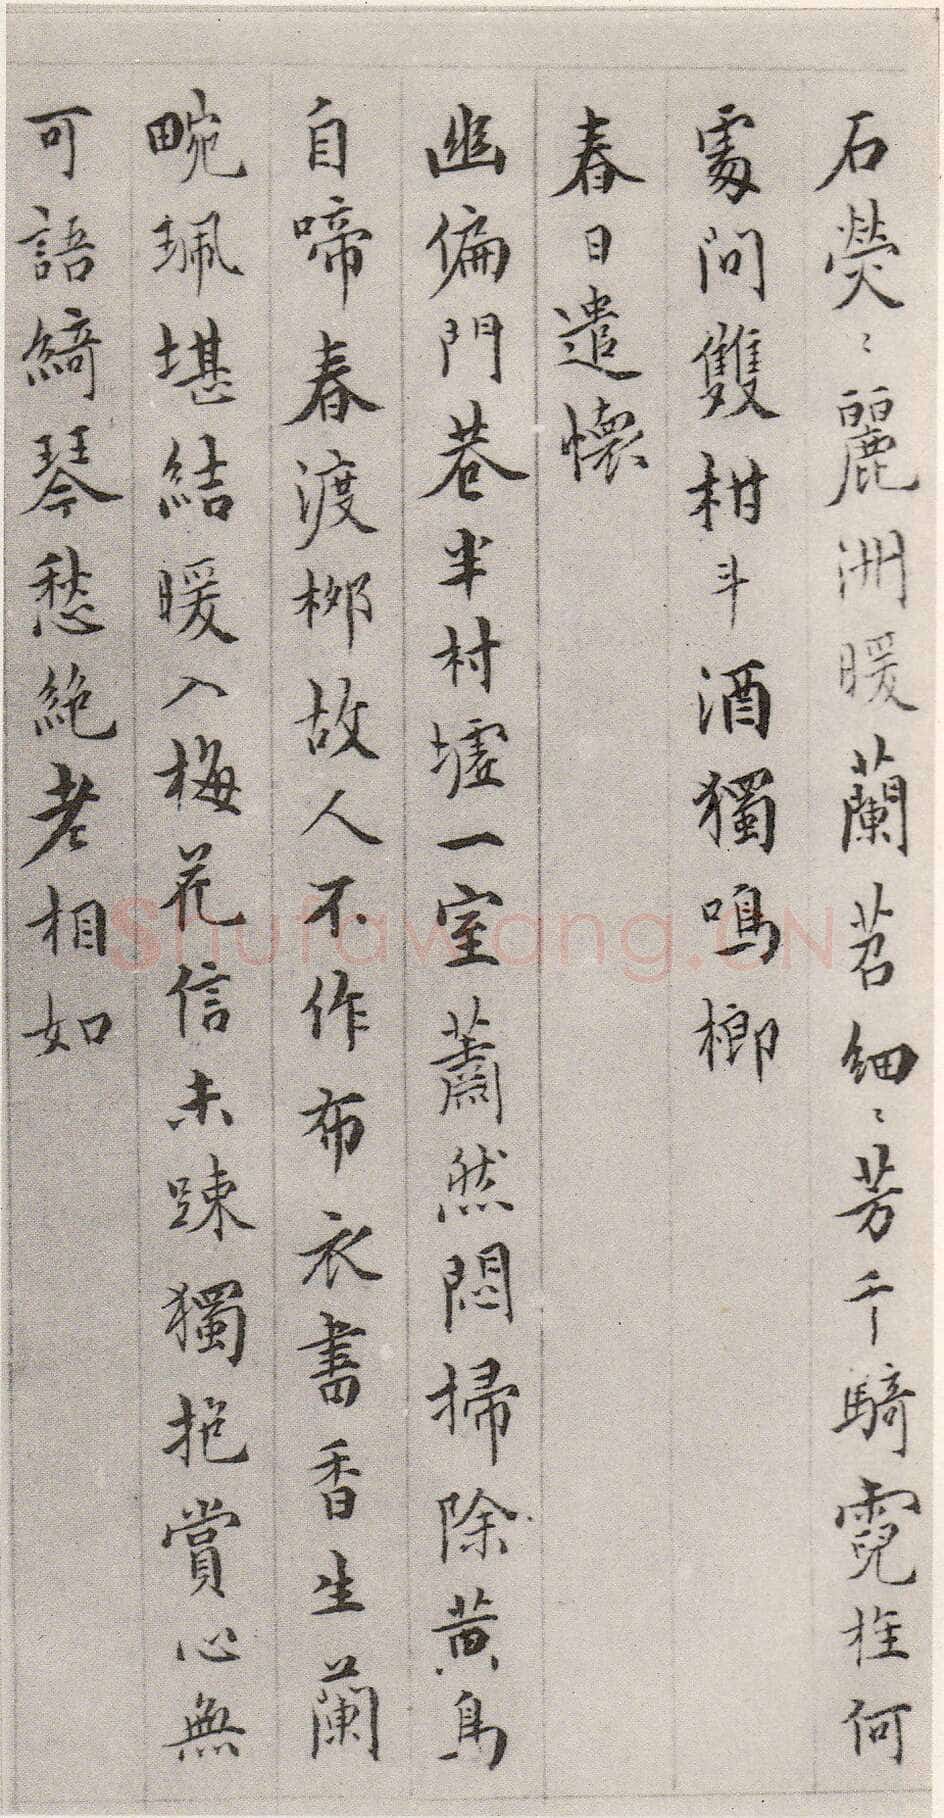 石熒〻麗洲暖蘭苕細〻芳千騎霓旌何
處问雙柑斗酒獨鳴榔
春日遣懷
幽偏門巷半村墟一室蕭然悶掃除黃鳥
自啼春渡柳故人不作布衣書香生蘭
畹珮堪結暖入梅花信未踈獨抱賞心無
可語綺琴愁絕老相如
Shufawang.CN